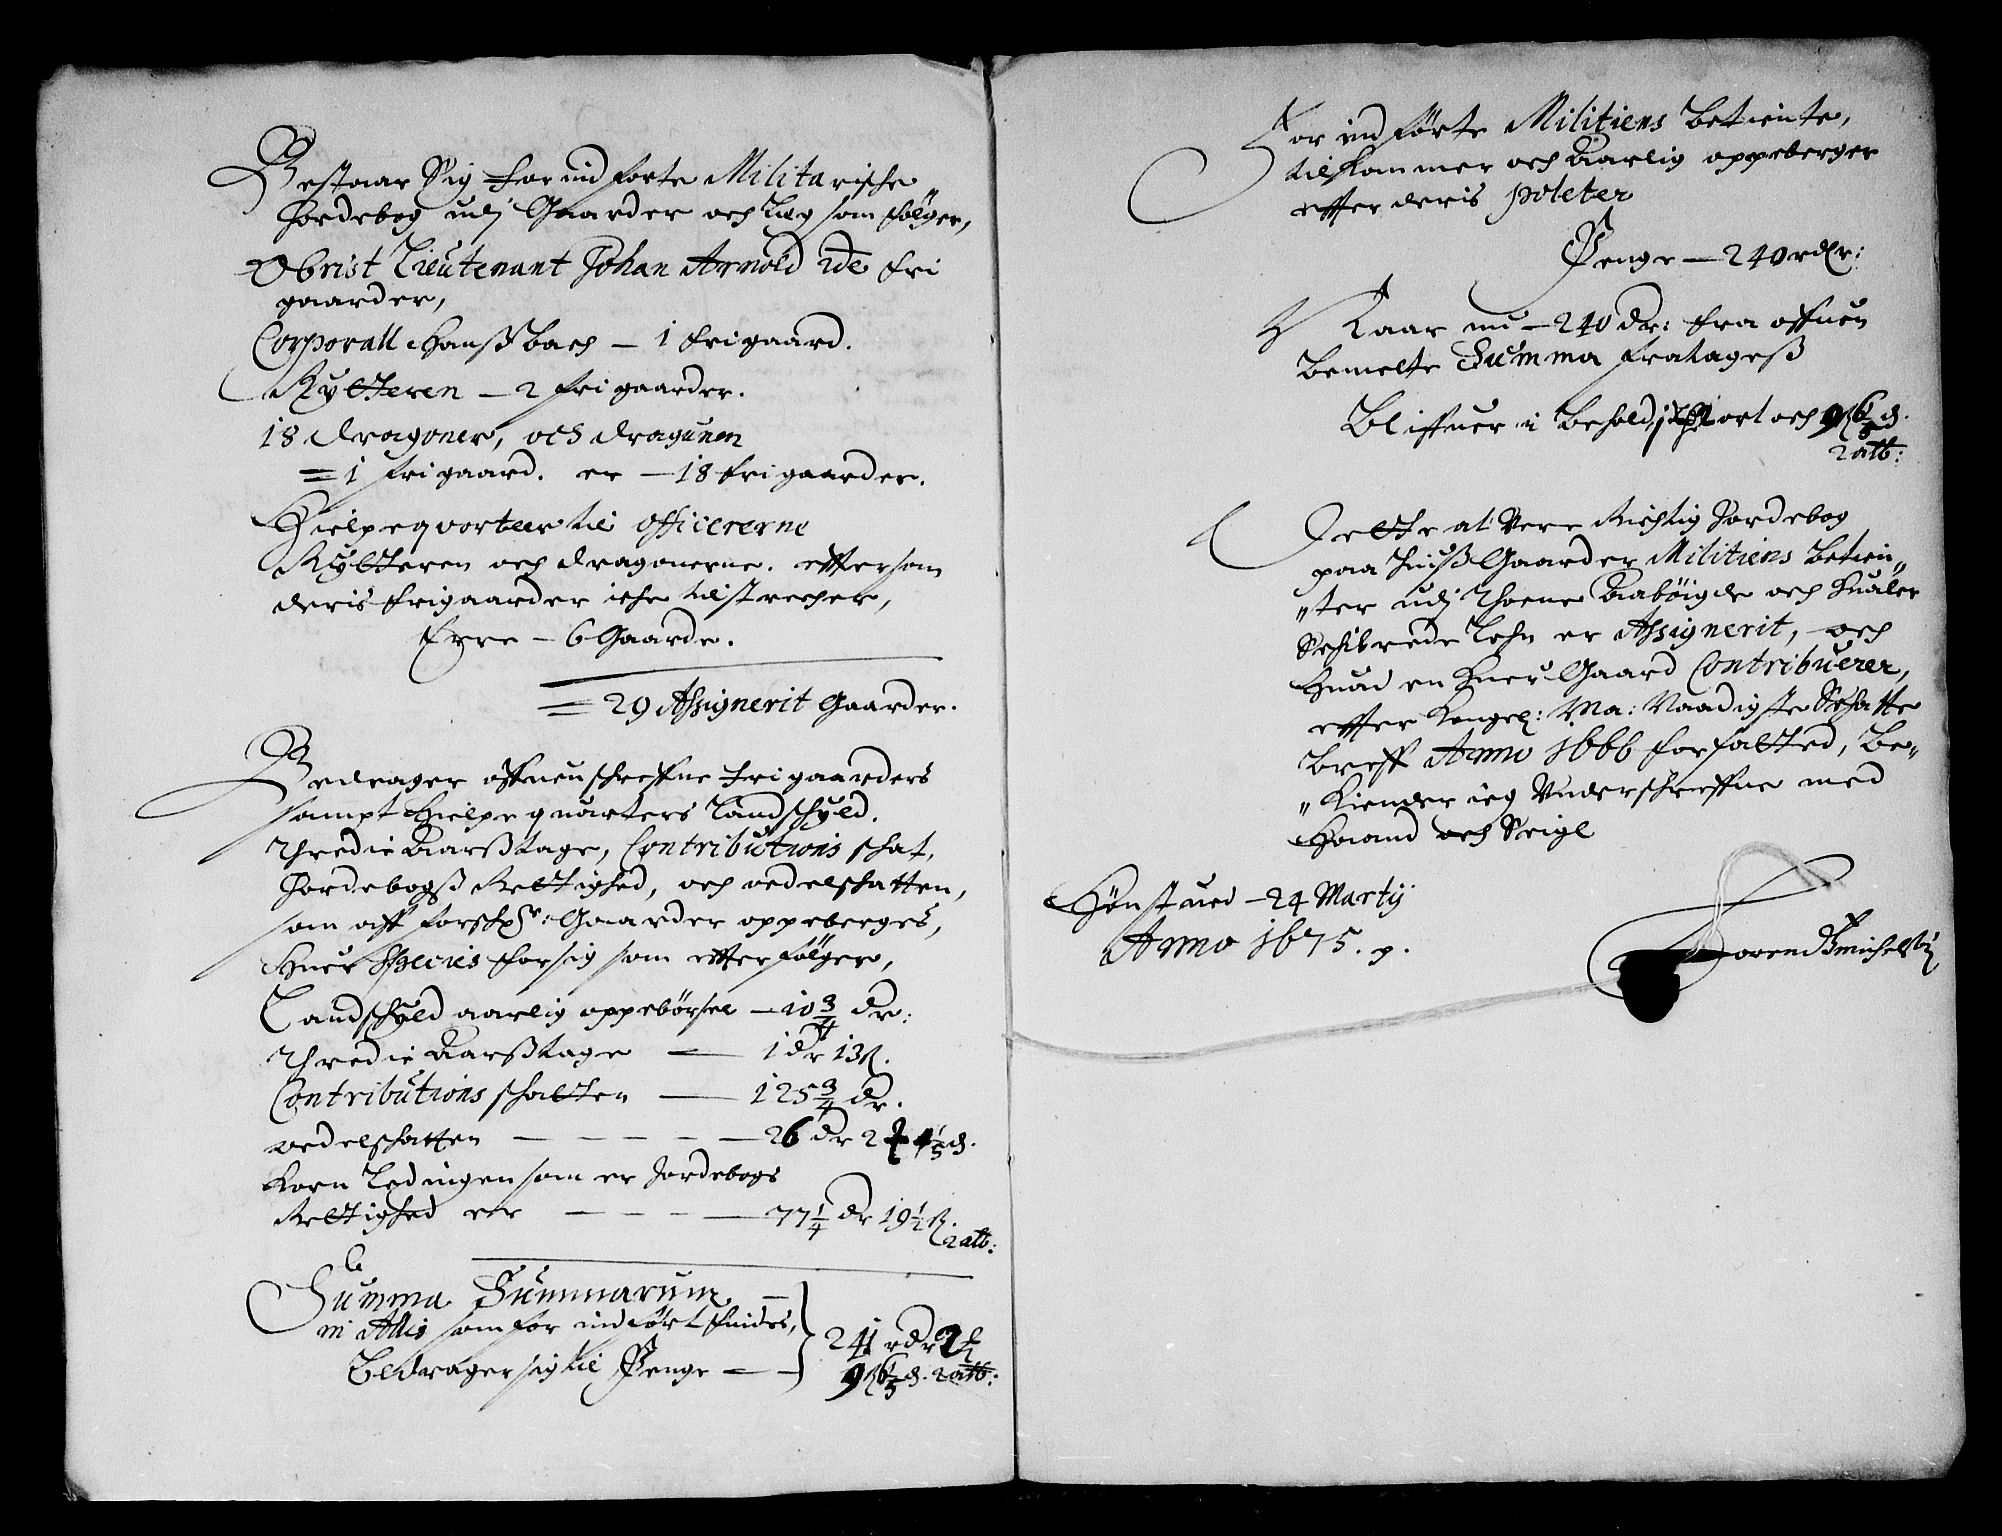 Bestaar Sig forindførte Militarische
Jordebog udj Gaarder och Læg som følger,
Obrist Lieutenant Johan Arnold 2de fri
gaarder,
Corporall Hanß bach – 1 frigaard.
Rytteren – 2 frigaarder.
18 dragoner, och dragunen
= 1 frigaard. er – 18 frigaarder.
Hielpeqvorteer til officererne
Rytteren och dragonerne. effersom
deris frigaarder iche tilstrecher,
Erre – 6 Gaarde.
= 29 Assignerit Gaarder.
Bedrager offuenschreffne frigaarders
sampt Hielpequarters Landschyld.
Thredie Aarßtage, Contributions schat,
Jordebogß Rettighed, och oedelschatten,
som aff forsch: Gaarder oppeberges,
Huer Species forsig som effterfølger,
Landschyld aarlig oppebørsel – 10 3/4 dr:
Thredie Aarßtage — 1 dr 13 ß.
Contributions schatten — 125 3/4 dr.
oedelschatten – – – – – 26 dr 2 1/5 d.
Korn Ledingen som er Jordebogs
Rettighed er – – – – 77 1/4 dr 19 1/2 ß.
2 alb:
Summa Summarum –
in Allis som for indført findes,
Bedrager sig til Penge – –
241 rdr
9 ß 6 1/5 d. 2 alb:
For indførte Militiens betiente,
tilkommer och Aarlig oppeberger
effter deris poleter
Penge – 240 rdlr:
Naar nu – 240 dr: fra offuen
bemelte Summa fratageß
Bliffuer i behold 1 ort och 9 ß 6 1/5 d.
2 alb:
Dette at Vere Richtig Jordebog
paa huiß Gaarder Militiens betien„
„ter udj Thoene Aabøigde och Hualer
Schibrede Lehn er Assignerit, och
Huad en Huer Gaard Contribuerer,
effter Kongel: Ma: Naadigste Schatte
breff Anno 1666 forfatted, Be„
„Kiender ieg Underschreffne med
Haand och Seigl
Hønstued – 24 Martij
Anno 1675. p.